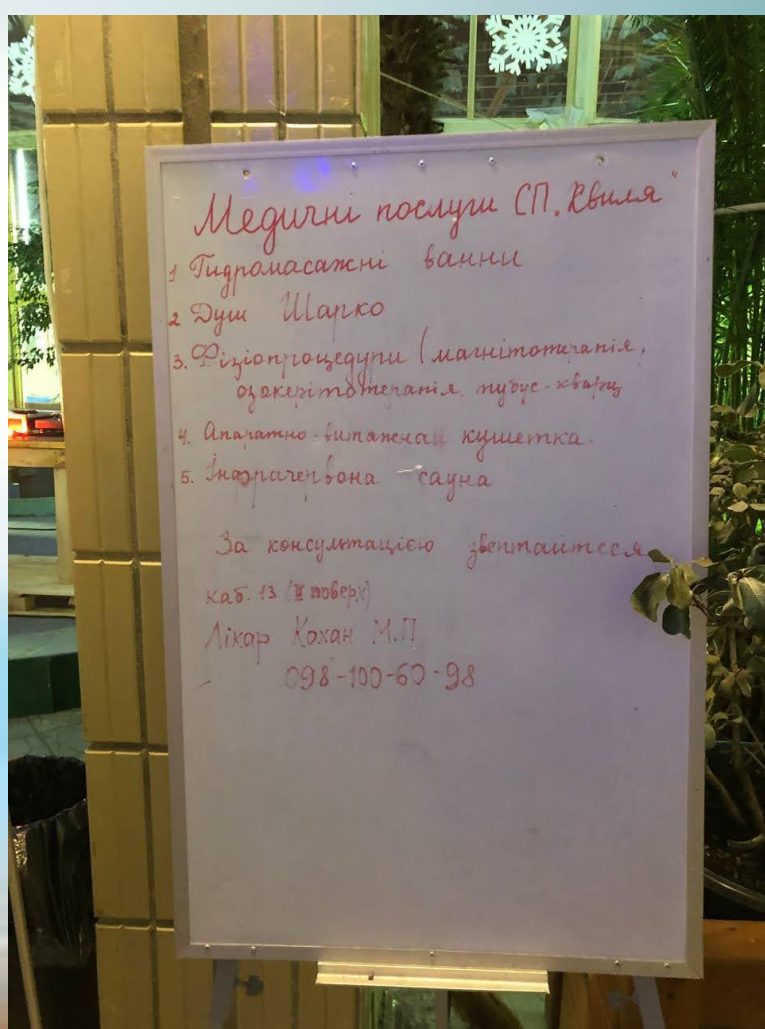 Медичні послуги СП „Хвиля"
1 Гидромасажні ванни
2 Душ Шарко
3. Фізіопроцедури (магнітотерапія,
озокерітотерапія, тубус-кварц
4. Апаратно-витяжная кушетка.
5. Інфрачервона сауна
За консультацією
каб. 13 (II поверх)
Лікар Кохан М.П
098-100-60-98